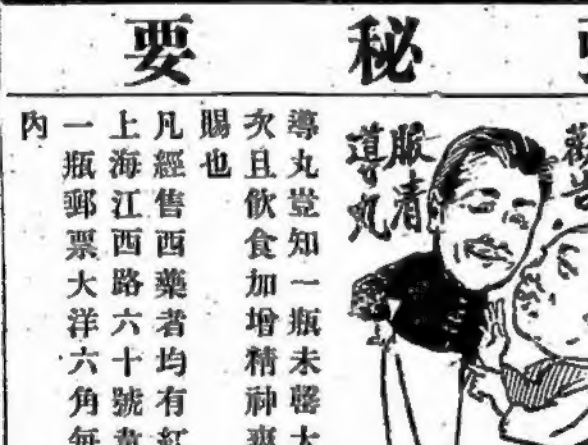 秘要
服清
導丸
導丸豈知一瓶未罄大
次且飲食加增精神爽
賜也
凡經售西藥者均有紅
上海江西路六十號
一瓶郵票大洋六角每
內